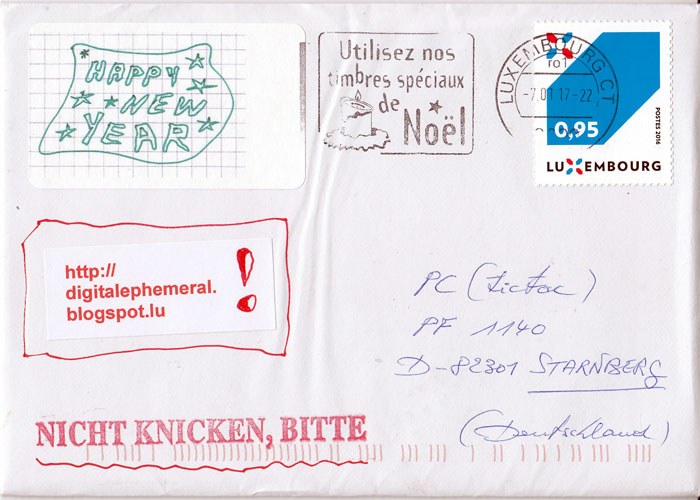 HAPPY
NEW
YEAR
Utilisez nos
timbres spéciaux
de
Noël
LUXEMBOURG CT
-7.01 17-22
0,95
POSTES 2016
LUXEMBOURG
http://
digitalephemeral.
blogspot.lu
!
PC (tictac)
PF 1140
D-82301 STARNBERG
(Deutschland)
NICHT KNICKEN, BITTE